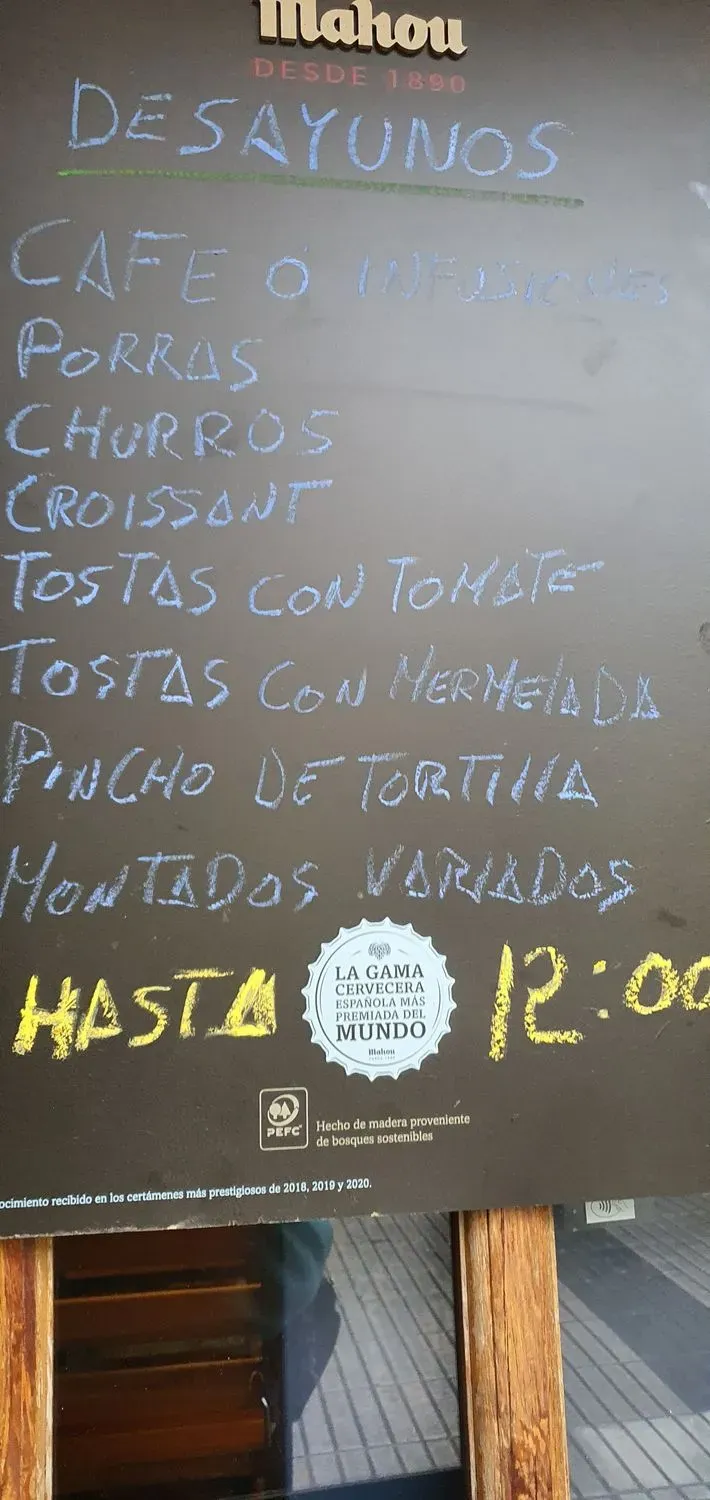 Mahou
DESDE 1890
DESAYUNOS
CAFE Ó INFUSIONES
PORRAS
CHURROS
CROISSANT
TOSTAS CON TOMATE
TOSTAS CON MERMELADA
PINCHO DE TORTILLA
MONTADOS VARIADOS
HASTA 12:00
LA GAMA
CERVECERA
ESPAÑOLA MÁS
PREMIADA DEL
MUNDO
Mahou
PEFC
Hecho de madera proveniente
de bosques sostenibles
ocimiento recibido en los certámenes más prestigiosos de 2018, 2019 y 2020.